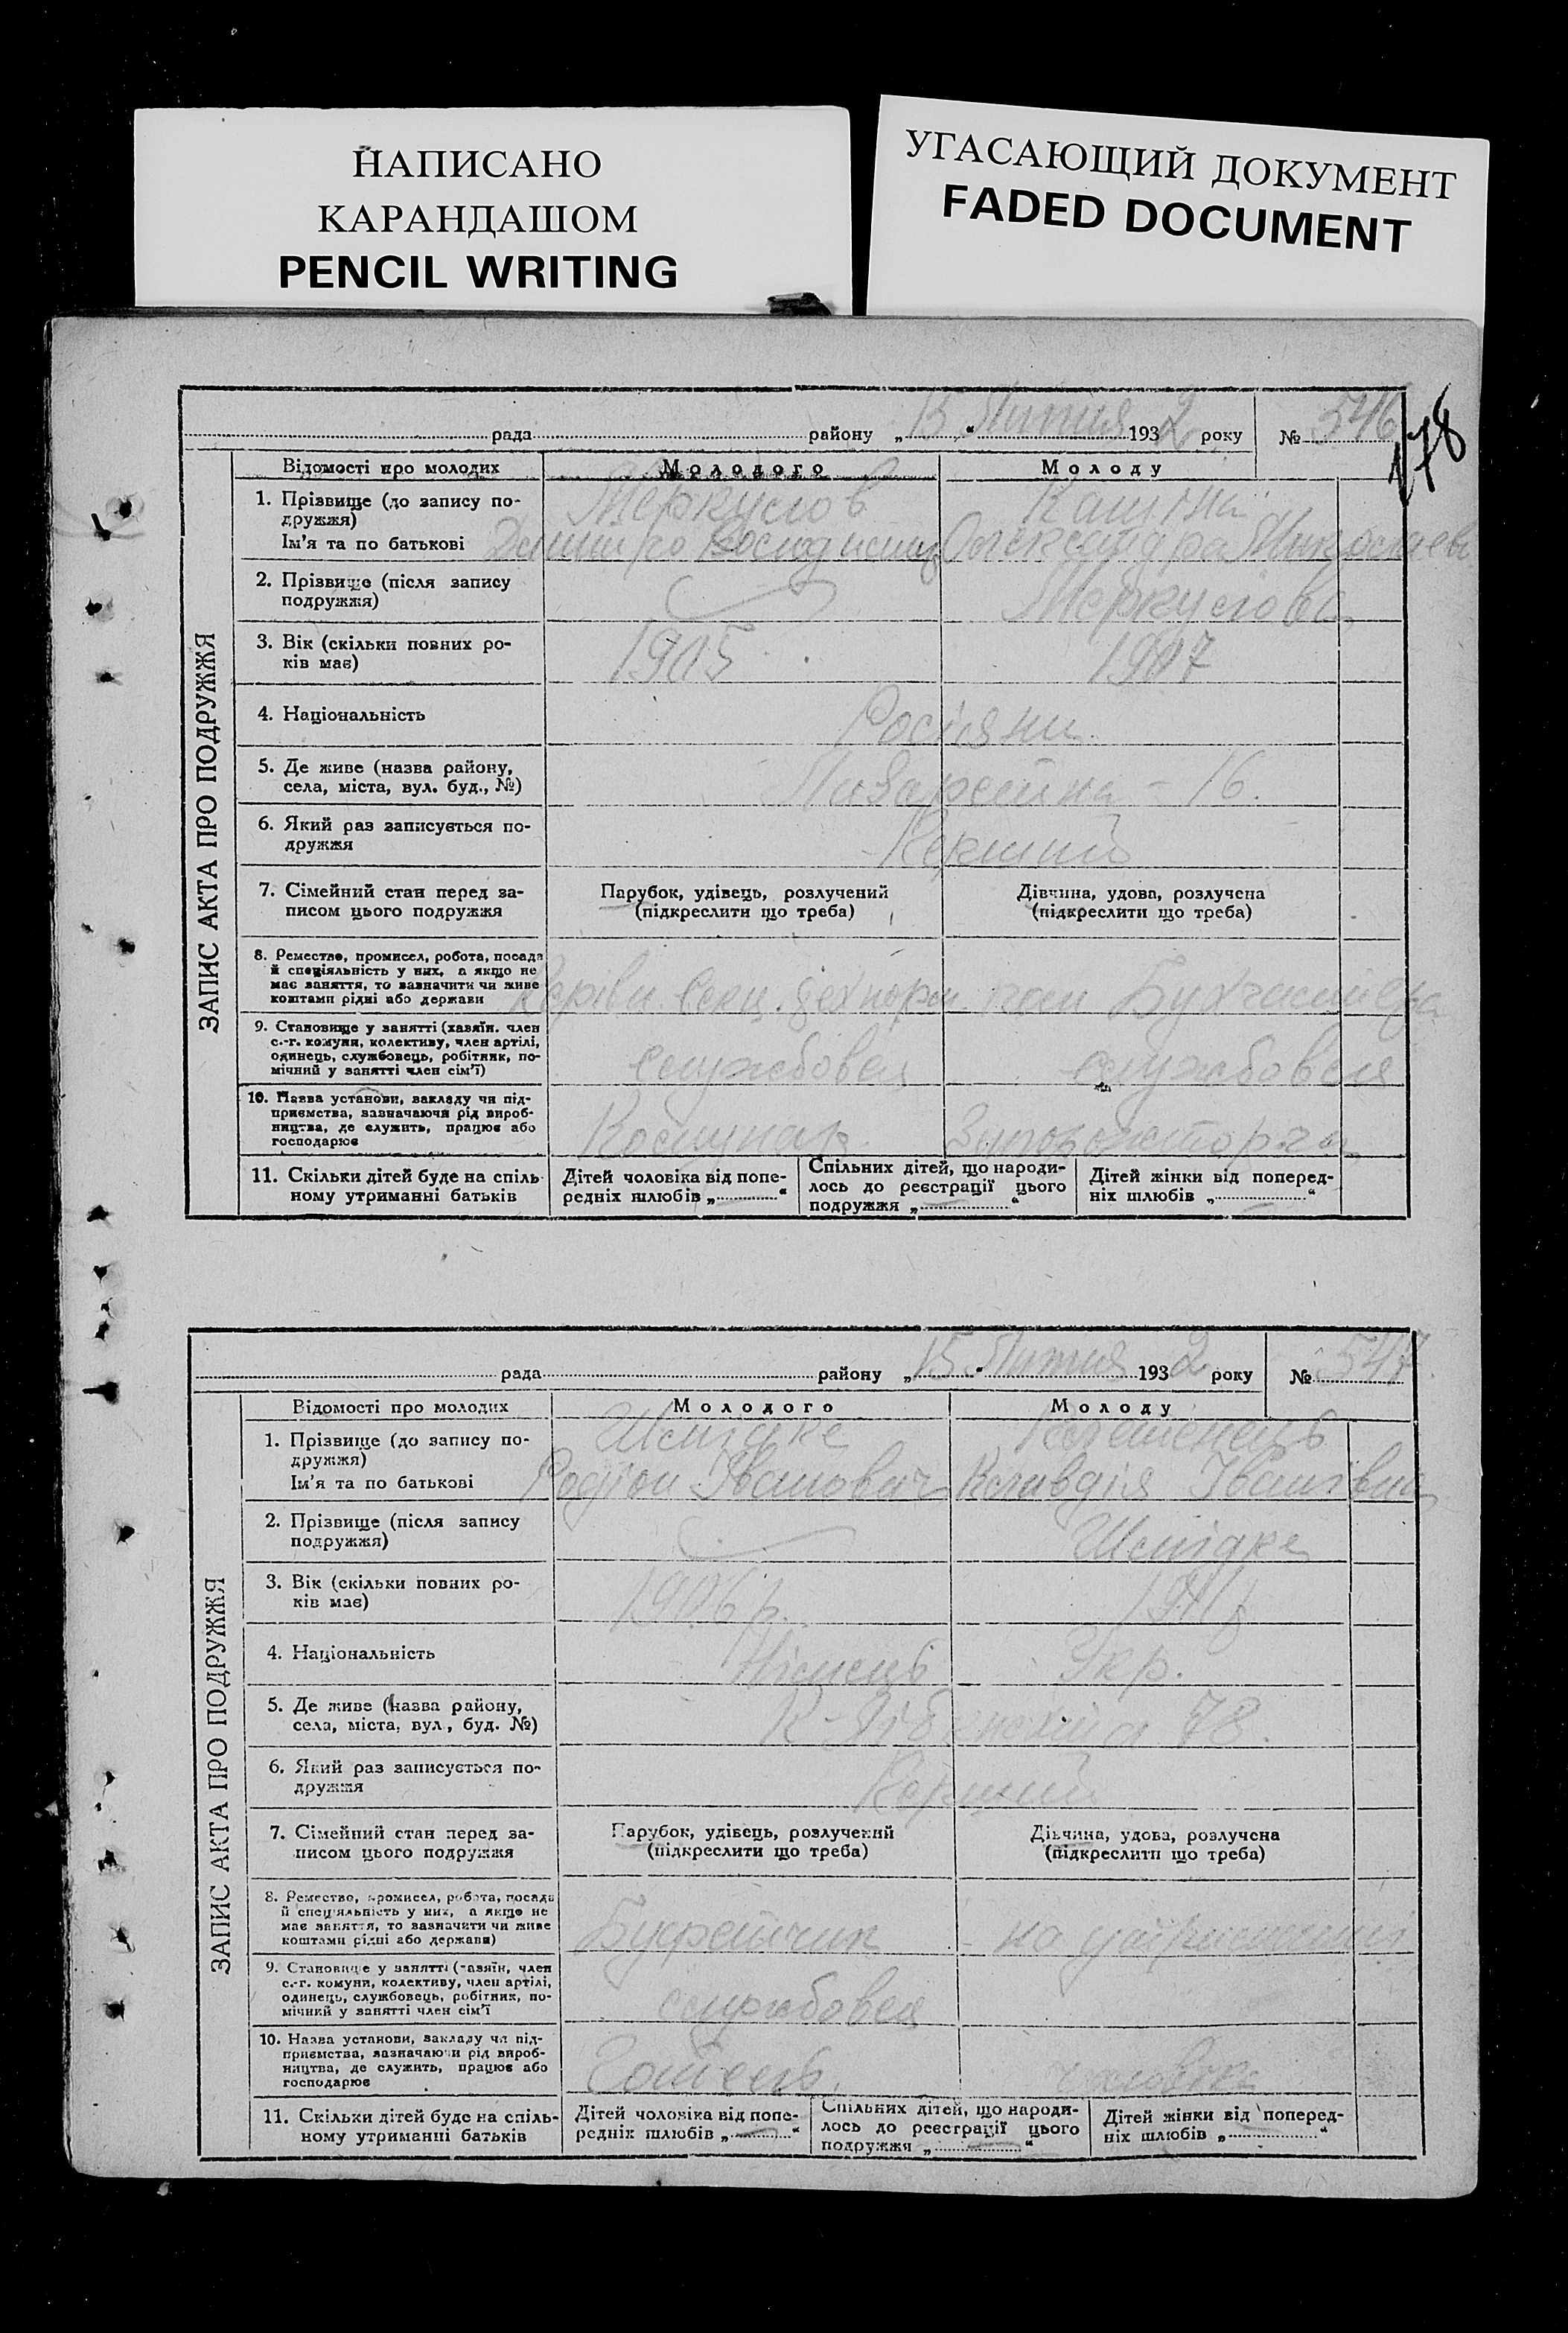 НАПИСАНО
КАРАНДАШОМ
PENCIL WRITING
УГАСАЮЩИЙ ДОКУМЕНТ
FADED DOCUMENT
178
рада району „15“ Лютня 1932 року № 546
ЗАПИС АКТА ПРО ПОДРУЖЖЯ
Відомості про молодих Молодого Молоду
1. Прізвище (до запису по-
дружжя)
Меркулов
Ім'я та по батькові
Олександра
2. Прізвище (після запису
подружжя)
Меркулова
3. Вік (скільки повних ро-
ків має)
1905 1907
4. Національність
Росіяни
5. Де живе (назва району,
села, міста, вул. буд., №)
Лазаретна - 16.
6. Який раз записується по-
дружжя
7. Сімейний стан перед за-
писом цього подружжя
Парубок, удівець, розлучений
(підкреслити що треба)
Дівчина, удова, розлучена
(підкреслити що треба)
8. Ремество, промисел, робота, посада
й спеціяльність у них, а якщо не
має заняття, то зазначити чи живе
коштами рідні або держави
9. Становище у занятті (хазяїн, член
с.-г. комуни, колективу, член артілі,
одинець, службовець, робітник, по-
мічний у занятті член сім'ї)
службовец службовец
10. Назва установи, закладу чи під-
приємства, зазначаючи рід вироб-
ництва, де служить, працює або
господарює
11. Скільки дітей буде на спіль-
ному утриманні батьків
Дітей чоловіка від попе-
редніх шлюбів „ “
Спільних дітей, що народи-
лось до реєстрації цього
подружжя „ “
Дітей жінки від поперед-
ніх шлюбів „ “
рада району „15“ Лютня 1932 року № 547
ЗАПИС АКТА ПРО ПОДРУЖЖЯ
Відомості про молодих Молодого Молоду
1. Прізвище (до запису по-
дружжя)
Ім'я та по батькові
Родіон Іванович Клавдія Іванівна
2. Прізвище (після запису
подружжя)
3. Вік (скільки повних ро-
ків має)
1906 р.
4. Національність
Німець Укр.
5. Де живе (назва району,
села, міста, вул., буд. №)
78.
6. Який раз записується по-
дружжя
7. Сімейний стан перед за-
писом цього подружжя
Парубок, удівець, розлучений
(підкреслити що треба)
Дівчина, удова, розлучена
(підкреслити що треба)
8. Ремество, промисел, робота, посада
й спеціяльність у них, а якщо не
має заняття, то зазначити чи живе
коштами рідні або держави)
Буфетчик на
9. Становище у занятті (хазяїн, член
с.-г. комуни, колективу, член артілі,
одинець, службовець, робітник, по-
мічний у занятті член сім'ї
службовец
10. Назва установи, закладу чи під-
приємства, зазначаючи рід вироб-
ництва, де служить, працює або
господарює
чоловіка
11. Скільки дітей буде на спіль-
ному утриманні батьків
Дітей чоловіка від попе-
редніх шлюбів „ “
Спільних дітей, що народи-
лось до реєстрації цього
подружжя „ “
Дітей жінки від поперед-
ніх шлюбів „ “